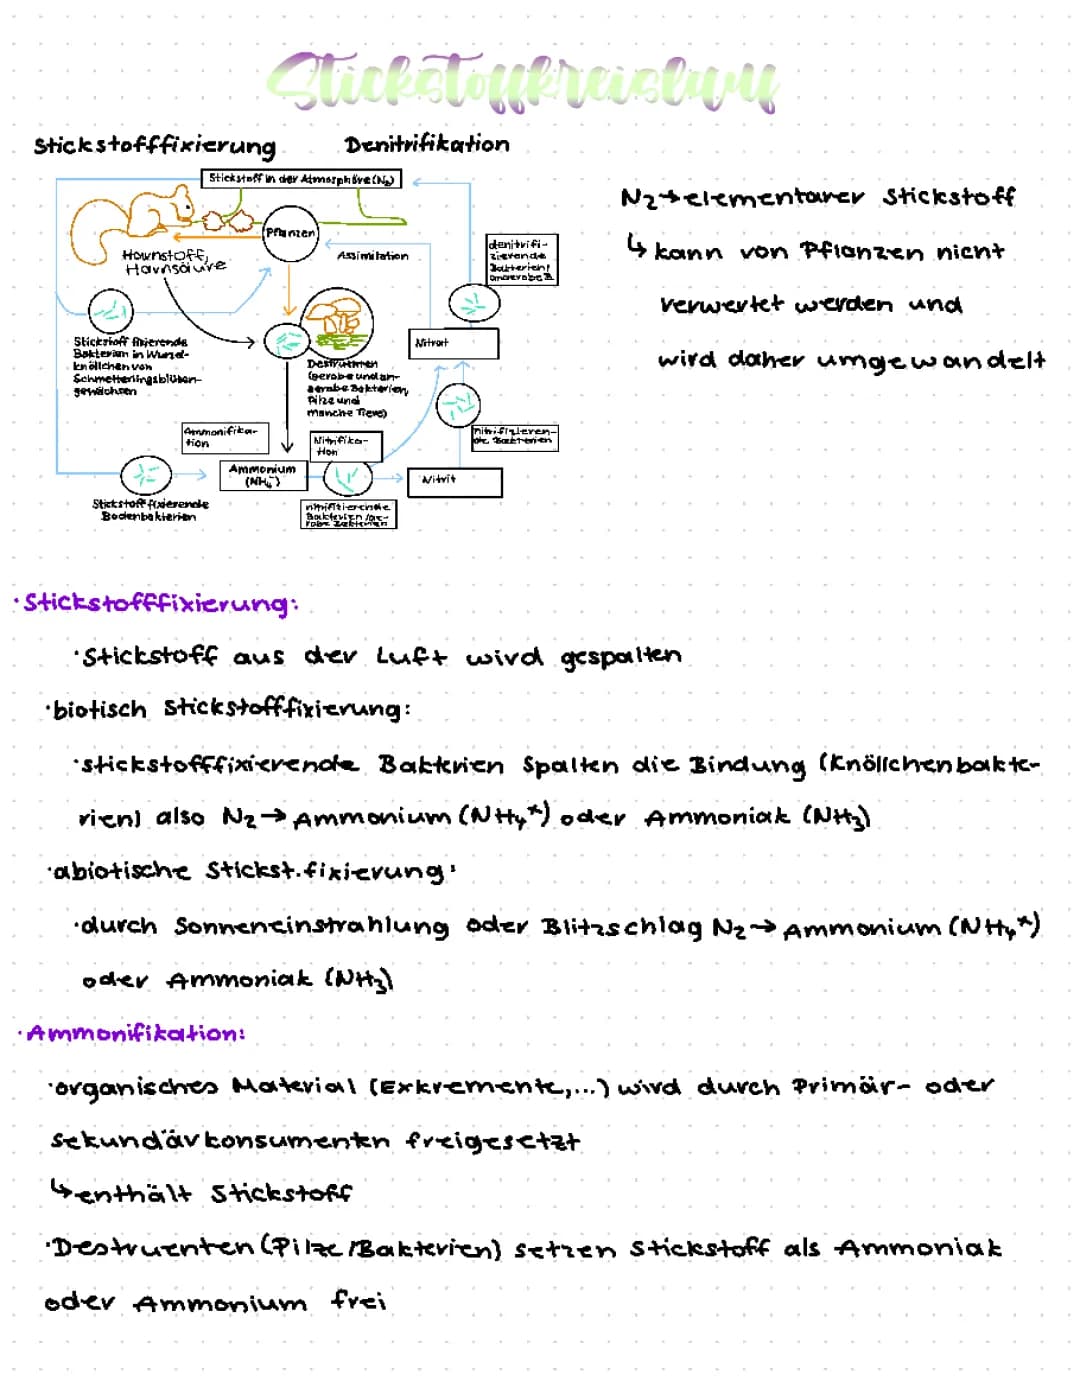 Stickstoffkreislauf
Stickstofffixierung
Denitrifikation
Stickstoff in der Atmosphäre (N₂)
Pflanzen
Harnstoff,
Harnsäure
Assimilation
denitrifi-
zierende
Bakterien
anaerobe
Stickstoff fixierende
Bakterien in Wurzel-
knöllchen von
Schmetterlingsblüten-
gewächsen
Destruenten
(aerobe und an-
aerobe Bakterien,
Pilze und
manche Tiere)
Nitrat
Ammonifika-
tion
Nitrifika-
tion
nitrifizieren-
de Bakterien
Ammonium
(NH₄⁺)
Nitrit
Stickstoff fixierende
Bodenbakterien
nitrifizierende
Bakterien
N₂→elementarer Stickstoff
↳ kann von Pflanzen nicht
verwertet werden und
wird daher umgewandelt
·Stickstofffixierung:
·Stickstoff aus der Luft wird gespalten
·biotisch Stickstofffixierung:
·stickstofffixierende Bakterien Spalten die Bindung (Knöllchenbakte-
rien) also N₂→Ammonium (NH₄⁺) oder Ammoniak (NH₃)
·abiotische Stickst.fixierung:
·durch Sonneneinstrahlung oder Blitzschlag N₂→Ammonium (NH₄⁺)
oder Ammoniak (NH₃)
·Ammonifikation:
·organisches Material (Exkremente,...) wird durch Primär- oder
Sekundärkonsumenten freigesetzt
↳enthält Stickstoff
·Destruenten (Pilze/Bakterien) setzen Stickstoff als Ammoniak
oder Ammonium frei